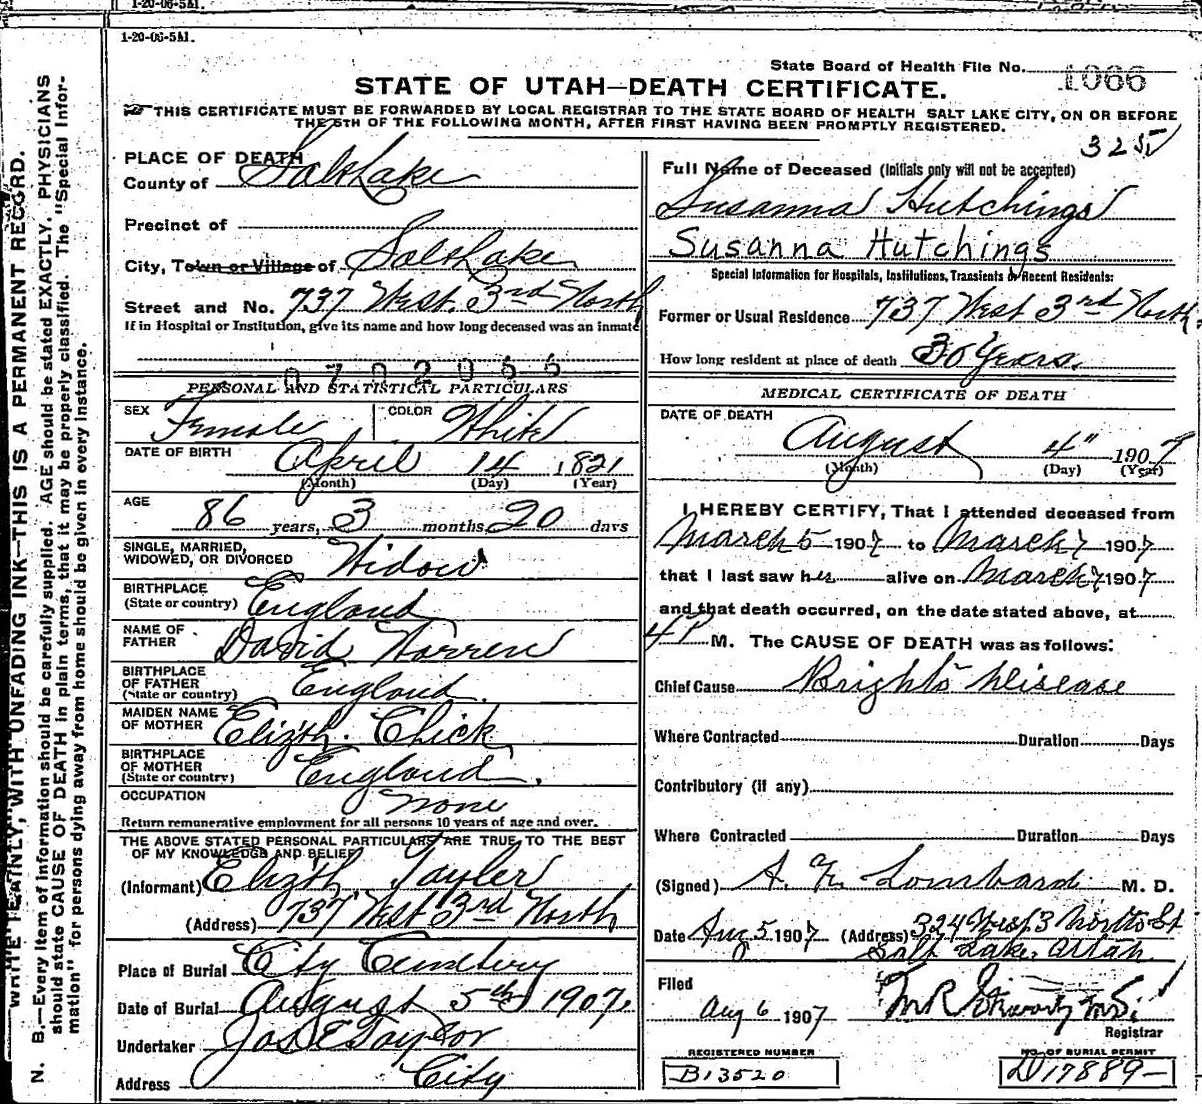 1-20-06-5M.
1-20-06-5M.
State Board of Health File No. 1066
STATE OF UTAH—DEATH CERTIFICATE.
THIS CERTIFICATE MUST BE FORWARDED BY LOCAL REGISTRAR TO THE STATE BOARD OF HEALTH SALT LAKE CITY, ON OR BEFORE
THE 5TH OF THE FOLLOWING MONTH, AFTER FIRST HAVING BEEN PROMPTLY REGISTERED.
WRITE PLAINLY, WITH UNFADING INK—THIS IS A PERMANENT RECORD.
N. B.—Every item of information should be carefully supplied. AGE should be stated EXACTLY. PHYSICIANS
should state CAUSE OF DEATH in plain terms, that it may be properly classified. The "Special Infor-
mation" for persons dying away from home should be given in every instance.
PLACE OF DEATH
County of Salt Lake
Precinct of
City, Town or Village of Salt Lake
Street and No. 737 West 3rd North
If in Hospital or Institution, give its name and how long deceased was an inmate
0702055
PERSONAL AND STATISTICAL PARTICULARS
SEX Female COLOR White
DATE OF BIRTH April 14 1821
(Month) (Day) (Year)
AGE 86 years, 3 months 20 days
SINGLE, MARRIED,
WIDOWED, OR DIVORCED Widow
BIRTHPLACE
(State or country) England
NAME OF
FATHER David Warren
BIRTHPLACE
OF FATHER
(State or country) England.
MAIDEN NAME
OF MOTHER Elizth. Chick
BIRTHPLACE
OF MOTHER
(State or country) England.
OCCUPATION none
Return remunerative employment for all persons 10 years of age and over.
THE ABOVE STATED PERSONAL PARTICULARS ARE TRUE TO THE BEST
OF MY KNOWLEDGE AND BELIEF
(Informant) Elizth. Tayler
(Address) 737 West 3rd North
Place of Burial City Cemetery
Date of Burial August 5th 1907.
Undertaker Jos E Taylor
Address City
325
Full Name of Deceased (Initials only will not be accepted)
Susanna Hutchings
Susanna Hutchings
Special Information for Hospitals, Institutions, Transients or Recent Residents:
Former or Usual Residence 737 West 3rd North.
How long resident at place of death 30 Years.
MEDICAL CERTIFICATE OF DEATH
DATE OF DEATH
August 4" 1907
(Month) (Day) (Year)
I HEREBY CERTIFY, That I attended deceased from
March 5 1907 to March 7 1907
that I last saw her alive on March 7 1907
and that death occurred, on the date stated above, at
4P M. The CAUSE OF DEATH was as follows:
Chief Cause Bright's Disease
Where Contracted Duration Days
Contributory (if any)
Where Contracted Duration Days
(Signed) A. F. Lombard M. D.
Date Aug 5 1907 (Address) 324 West 3 North St
Salt Lake, Utah
Filed
Aug 6 1907
Registrar
REGISTERED NUMBER
B13520
NO. OF BURIAL PERMIT
D17889-